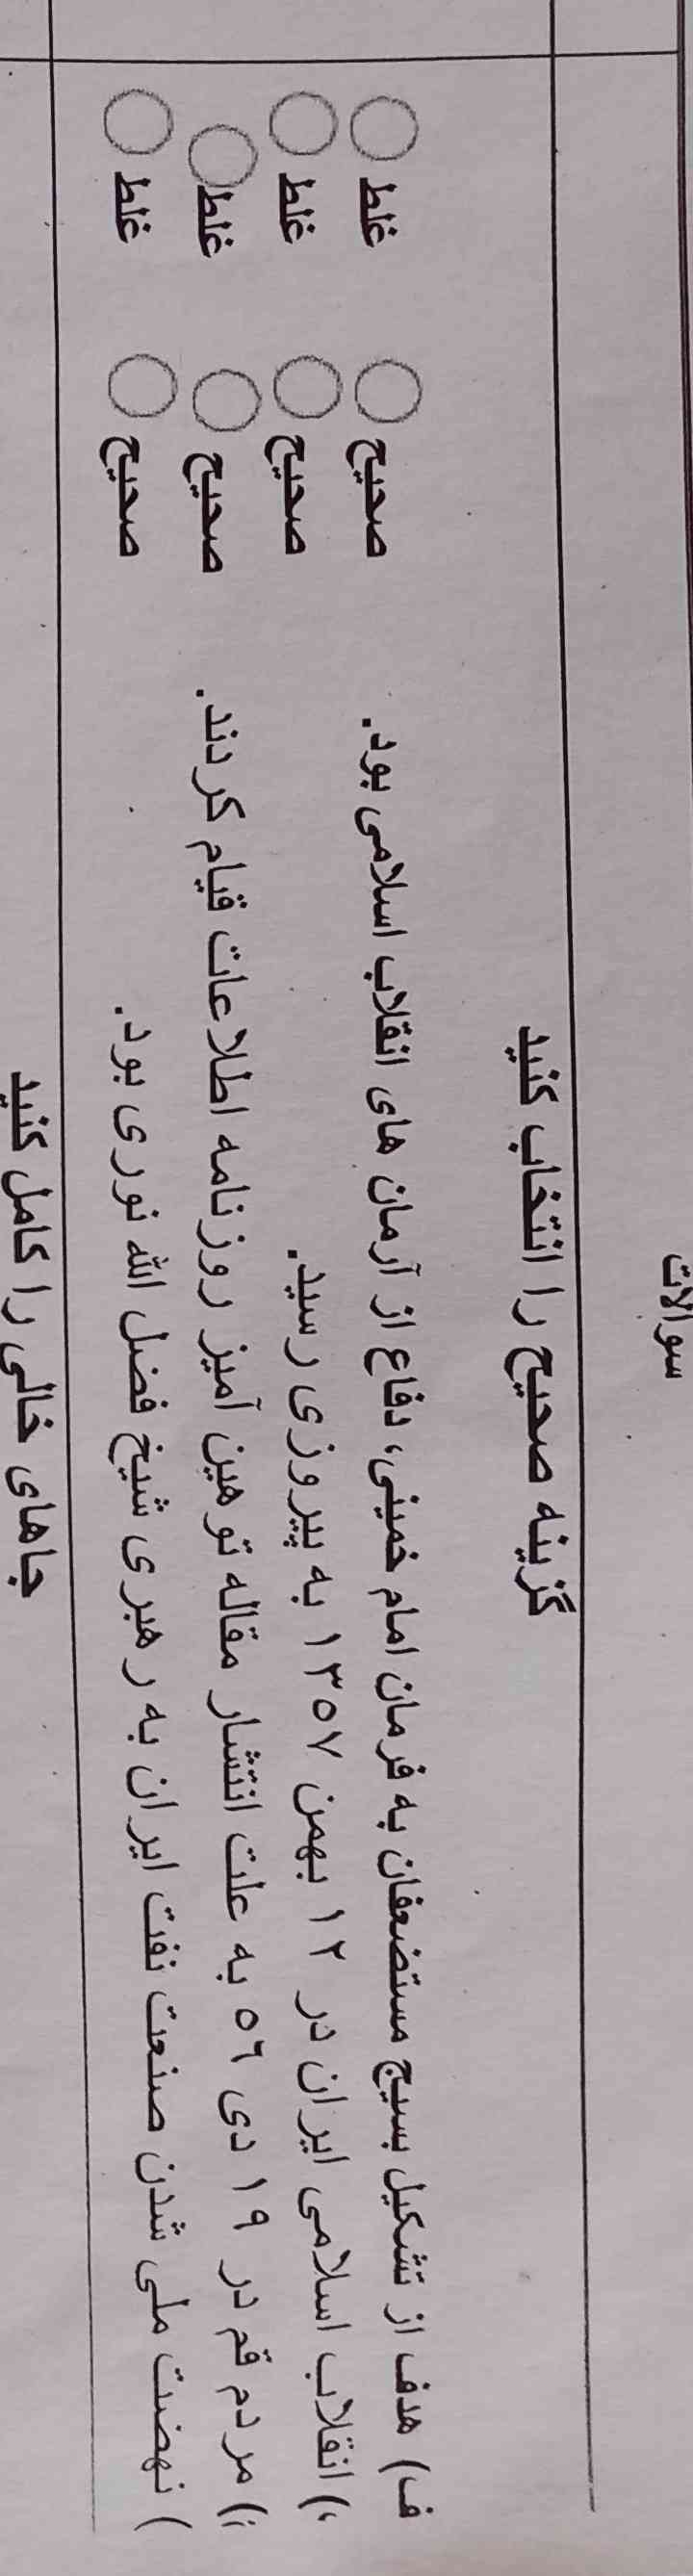 سوالات
گزینه صحیح را انتخاب کنید
ف) هدف از تشکیل بسیج مستضعفان به فرمان امام خمینی، دفاع از آرمان های انقلاب اسلامی بود. صحیح غلط
) انقلاب اسلامی ایران در ۱۲ بهمن ۱۳۵۷ به پیروزی رسید. صحیح غلط
) مردم قم در ۱۹ دی ۵٦ به علت انتشار مقاله توهین آمیز روزنامه اطلاعات قیام کردند. صحیح غلط
) نهضت ملی شدن صنعت نفت ایران به رهبری شیخ فضل الله نوری بود. صحیح غلط
جاهای خالی را کامل کنید